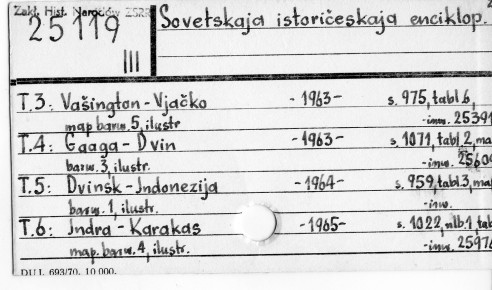 Zakł. Hist. Narodów ZSRR
25119
III
Sovetskaja istoričeskaja enciklop.
T.3: Vašington - Vjačko -1963- s. 975, tabl. 6,
map barw. 5, ilustr -inw. 25391
T.4: Gaaga - Dvin -1963- s. 1071, tabl. 2, map
barw. 3, ilustr. -inw. 2560
T.5: Dvinsk - Indonezija -1964- s. 959, tabl. 3, map
barw. 1, ilustr. -inw.
T.6: Indra - Karakas -1965- s. 1022, nlb. 1, tab
map. barw. 4, ilustr. -inw. 25976
DUJ. 693/70. 10.000.